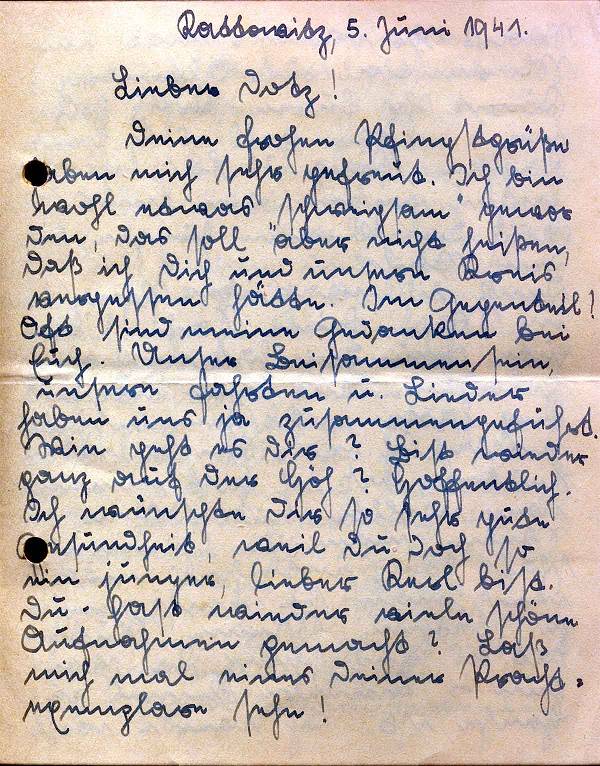 Kattowitz, 5. Juni 1941.
Lieber Dotz!
Deine frohen Pfingstgrüße
haben mich sehr gefreut. Ich bin
wohl etwas "schweigsam" gewor
den, das soll aber nicht heißen,
daß ich Dich und unsern Kreis
vergessen hätte. Im Gegenteil!
Oft sind meine Gedanken bei
Euch. Unser Beisammensein,
unsere Fahrten u. Lieder
haben uns ja zusammengeführt.
Wie geht es Dir? Bist wieder
ganz auf der Höh? Hoffentlich.
Ich wünschte Dir so sehr gute
Gesundheit, weil Du doch so
ein junger, lieber Kerl bist.
Du hast wieder viele schöne
Aufnahmen gemacht? Laß
mich mal eines Deiner Pracht-
exemplare sehn!